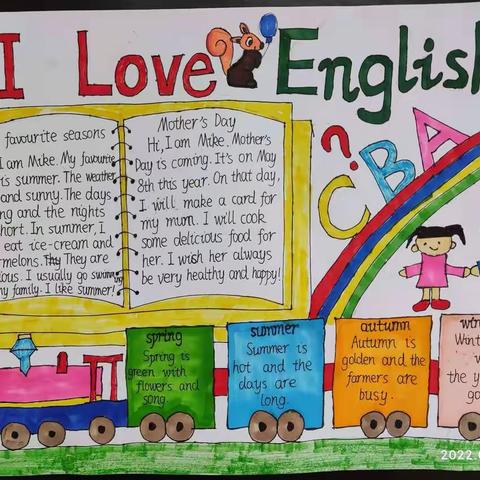 I Love English
favourite seasons
I am Mike. My favourite
is summer. The weather
and sunny. The days
and the nights
short. In summer, I
eat ice-cream and
They They are
I usually go swimming
my family. I like summer!
Mother's Day
Hi, I am Mike. Mother's
Day is coming. It's on May
8th this year. On that day,
I will make a card for
my mum. I will cook
some delicious food for
her. I wish her always
be very healthy and happy!
?
C B A
spring
Spring is
green with
flowers and
song.
summer
Summer is
hot and the
days are
long.
autumn
Autumn is
golden and the
farmers are
busy.
2022.